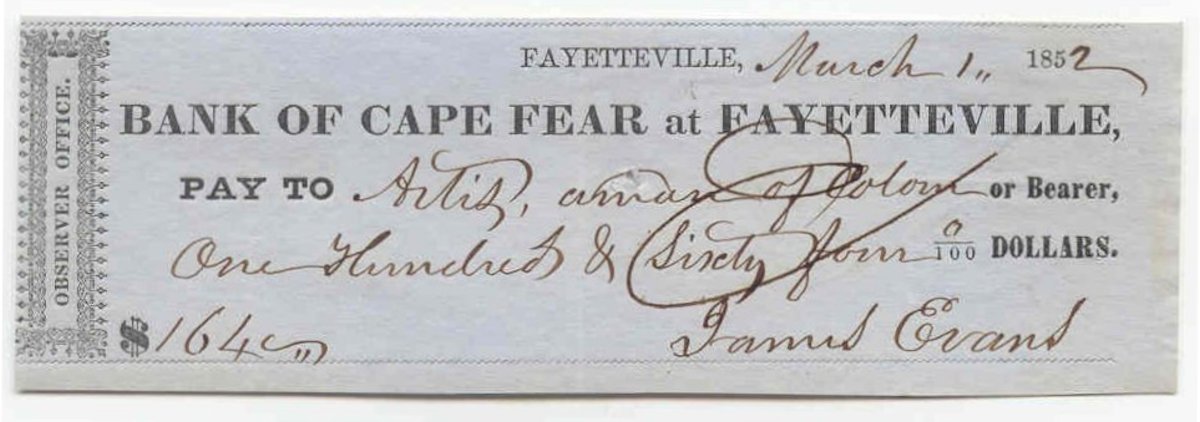 OBSERVER OFFICE.
FAYETTEVILLE, March 1,, 1852
BANK OF CAPE FEAR at FAYETTEVILLE,
PAY TO Artis, a man of Colour or Bearer,
One Hundred & Sixty four 0/100 DOLLARS.
$164
James Evans